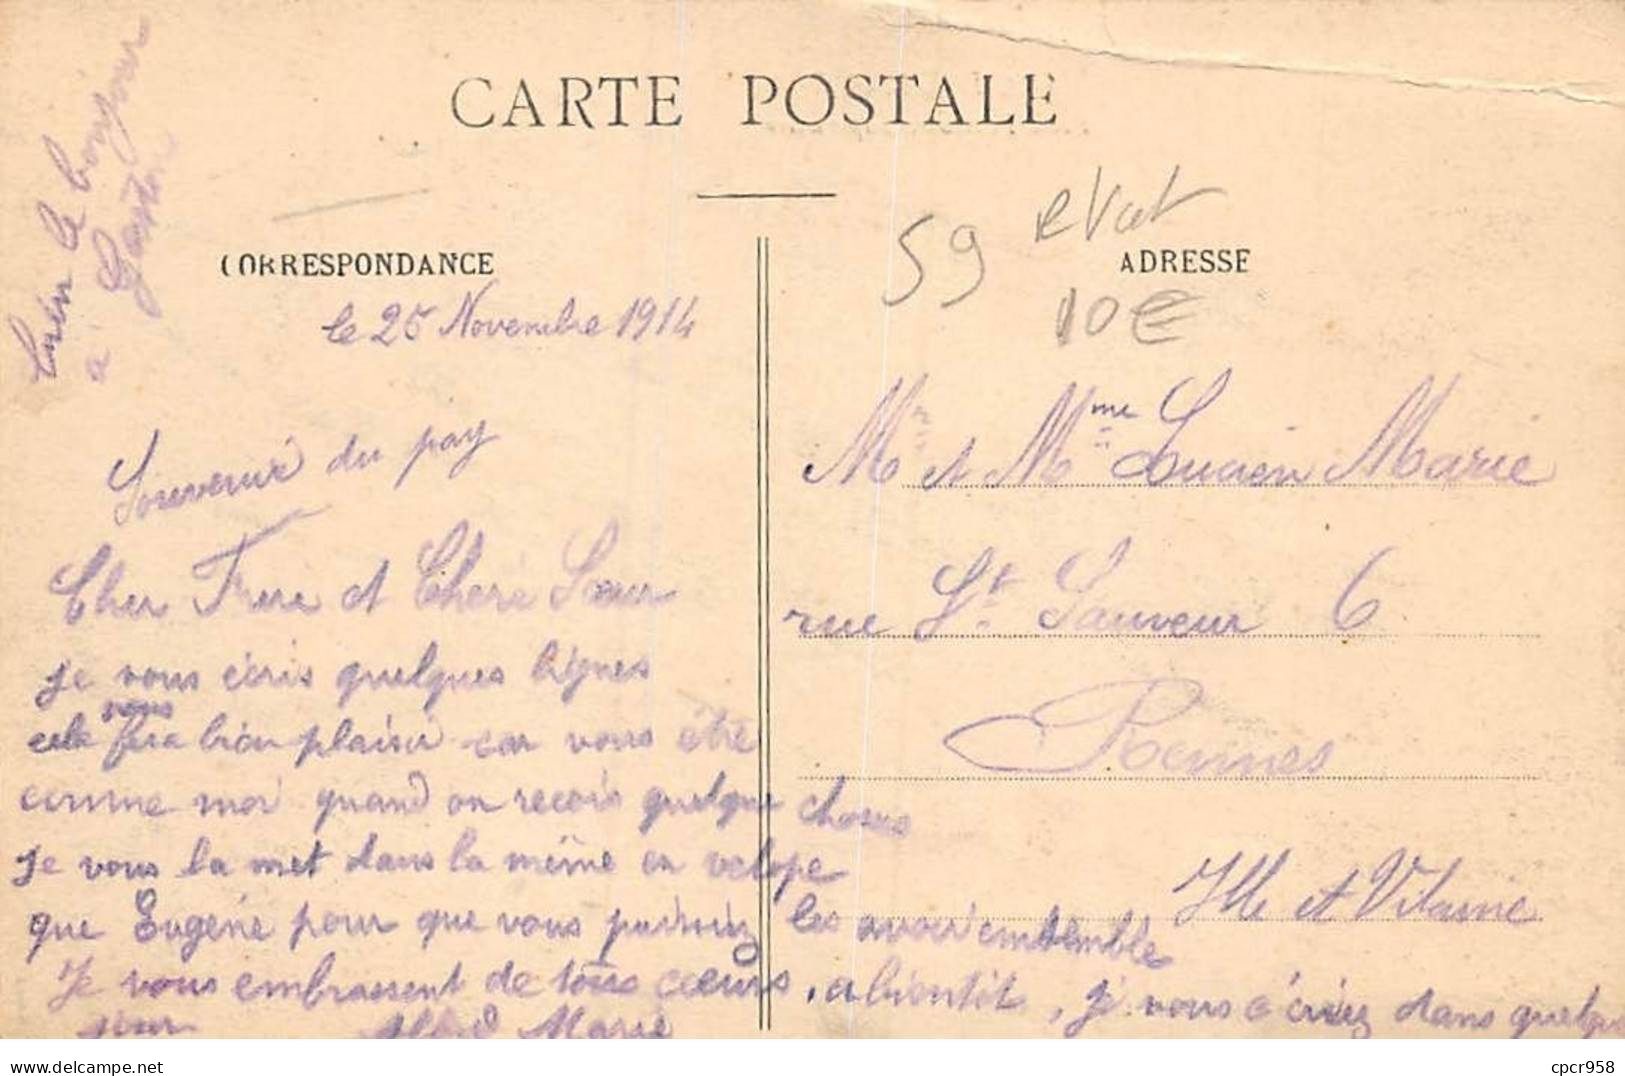 CARTE POSTALE
CORRESPONDANCE
le 25 Novembre 1914
bien le bonjour
à Gaston
Souvenir du pay
Cher Frere et Chere Sœur
je vous écris quelques lignes
vous
cela fera bien plaisir car vous éte
comme moi quand on recois quelque choses
je vous la met dans la même en velope
que Eugène pour que vous puissiez les avoir emtemble
Je vous embrassent de tous cœurs, a bientôt, je vous é criez dans quelque
jour Marie
59
10€
ADRESSE
Mr et Mme Lucien Marie
rue St. Sauveur 6
Rennes
Ille et Vilaine
www.delcampe.net
cpcr958